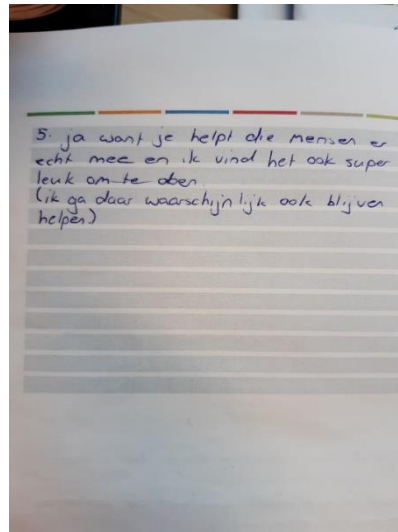 5. ja want je helpt die mensen er
echt mee en ik vind het ook super
leuk om te doen.
(ik ga daar waarschijnlijk ook blijven
helpen)